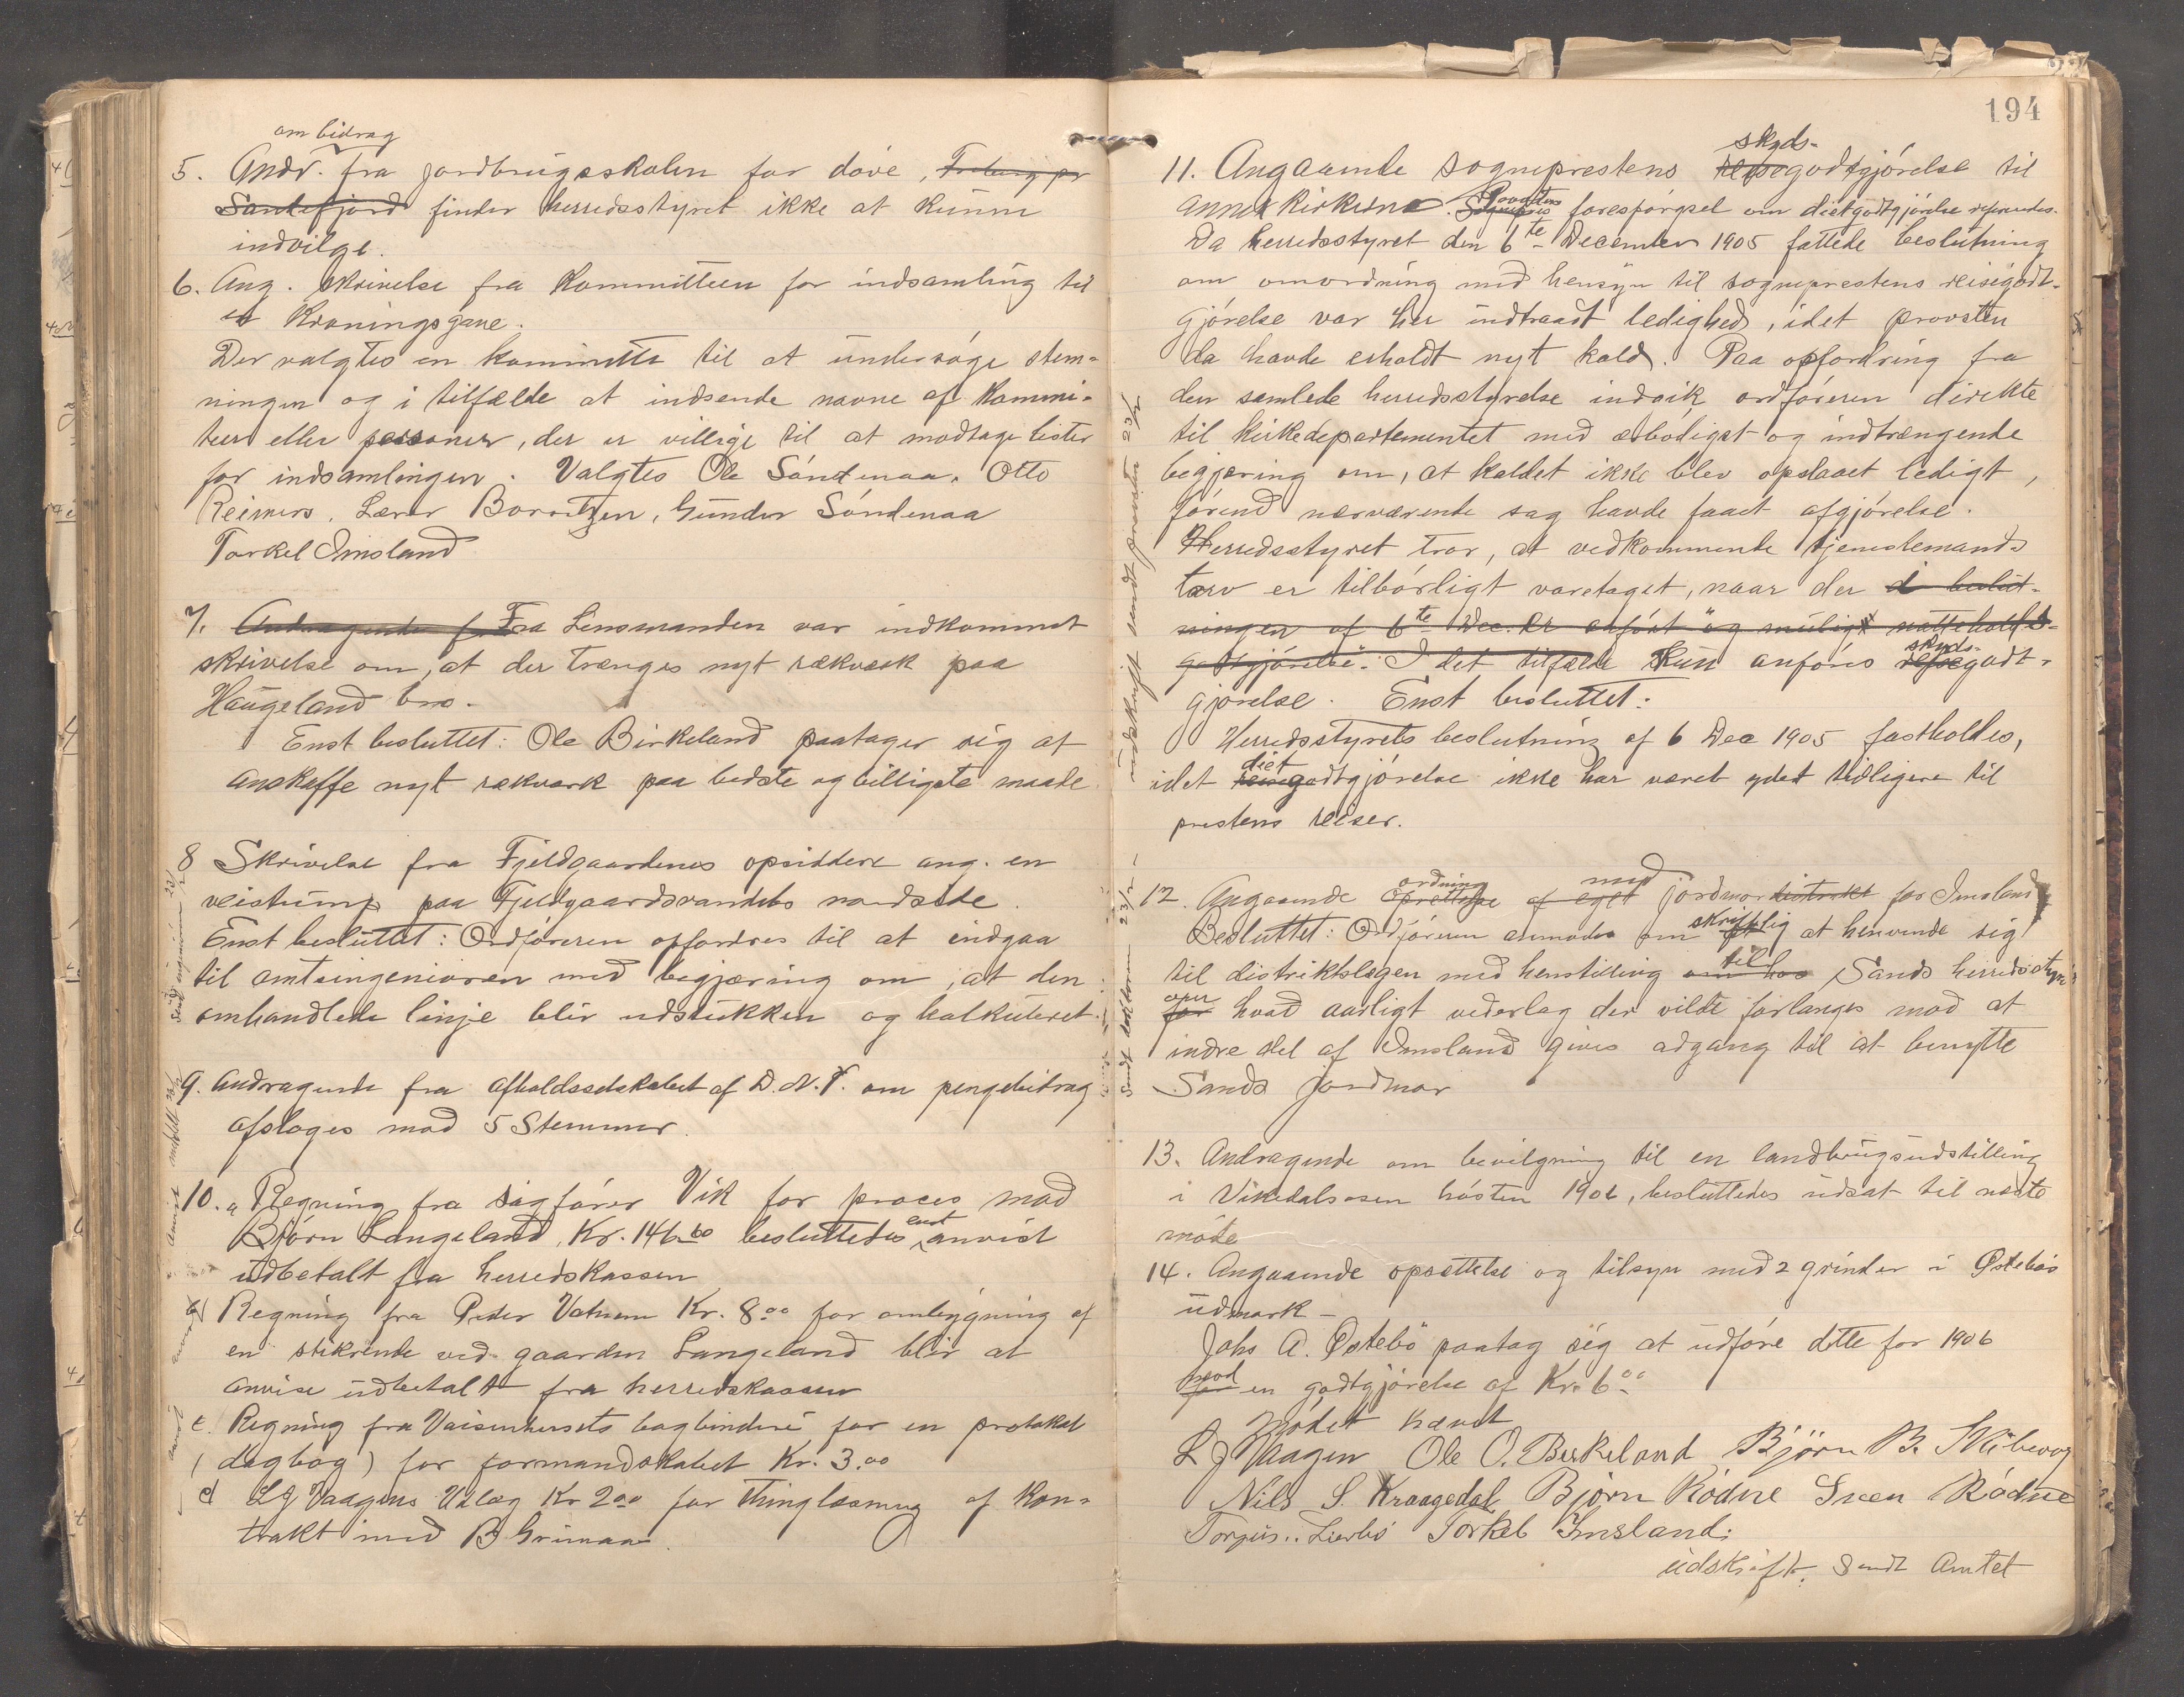 om bidrag
5. Andr. fra jordbrugsskolen for døve, Freberg pr
Sandefjord finder herredsstyret ikke at kunne
indvilge.
6. Ang. skrivelse fra Kommitteen for indsamling til
en Kroningsgave.
Der valgtes en kommitte til at undersøge stem-
ningen og i tilfælde at indsende navne af Kommi-
teer eller personer, der er villige til at modtage lister
for indsamlingen. Valgtes Ole Søndenaa, Otto
Reimers, Lærer Borretzen, Gunder Søndenaa
Torkel Imsland
7. Andragende f Fra Lensmanden var indkommet
skrivelse om, at der trænges nyt rækværk paa
Haugeland bro.
Enst besluttet: Ole Birkeland paatager sig at
anskaffe nyt rækværk paa bedste og billigste maade.
8 Skrivelse fra Fjeldgaardenes opsiddere ang. en
veistump paa Fjeldgaardsvandets nordside.
Enst besluttet: Ordføreren opfordres til at indgaa
til amtsingeniøren med begjæring om, at den
omhandlede linje blir udstukken og kalkuleret.
9. Andragende fra afholdsselskabet af D. N. T. om pengebidrag
afsloges mod 5 Stemmer.
10. a Regning fra sagfører Vik for proces mod
Bjørn Langeland, Kr. 146.60 besluttedes enst anvist
udbetalt fra herredskassen
b) Regning fra Peder Vatnem Kr. 8.00 for ombygning af
en stikrende ved gaarden Langeland blir at
anvise udbetalt fra herredskassen
c. Regning fra Vaisenhusets bogbinderi for en protokol
(dagbog) for formandskabet Kr. 3.00
d L J Vaagens Udlæg Kr 2.00 for Thinglæsning af Kon-
trakt med B Grimaa.
194
11. Angaaende sogneprestens skyds- reisegodtgjørelse til
annexkirkerne. Provstens Sogneprs forespørgsel om diætgodtgjørelse
Da herredsstyret den 6te December 1905 fattede beslutning
om omordning med hensyn til sogneprestens reisegodt-
gjørelse var her indtraadt ledighed, idet provsten
da havde erholdt nyt kald. Paa opfordring fra
den samlede herredsstyrelse indgik ordføreren direkte
til kirkedepartementet med ærbødigst og indtrængende
begjæring om, at kaldet ikke blev opslaaet ledigt,
førend nærværende sag havde faaet afgjørelse.
Herredsstyret tror, at vedkommende tjenestemands
tarv er tilbørligt varetaget, naar der i beslut-
ningen af 6te Dec. er anført "og mulig nattehold-
godtgjørelse". I det tilfælde kun anføres skyds- reisegodt-
gjørelse. Enst besluttet:
Herredsstyrets beslutning af 6 Dec 1905 fastholdes,
idet diæt reisegodtgjørelse ikke har været ydet tidligere til
prestens reiser.
12. Angaaende ordning oprettelse af eget med jordmordistrikt for Imsland
Besluttet: Ordføreren anmodes om skriftlig at henvende sig
til distriktslægen med henstilling om hos til Sands herredsstyre
over for hvad aarligt vederlag der vilde forlanges mod at
indre del af Imsland gives adgang til at benytte
Sands jordmor
13. Andragende om bevilgning til en landbrugsudstilling
i Vikedalsosen høsten 1906, besluttedes udsat til næste
møde
14. Angaaende opsættelse og tilsyn med 2 grinder i Østebøs
udmark -
Johs A. Østebø paatog sig at udføre dette for 1906
mod for en godtgjørelse af Kr. 6.00
Mødet hævet
L J Vaagen Ole O. Birkeland Bjørn B. Skibevog
Nils S. Kraagedal Bjørn Rødne Sven Rødne
Torgus.. Lierbø Torkel Imsland.
udskrift. Sendt Amtet